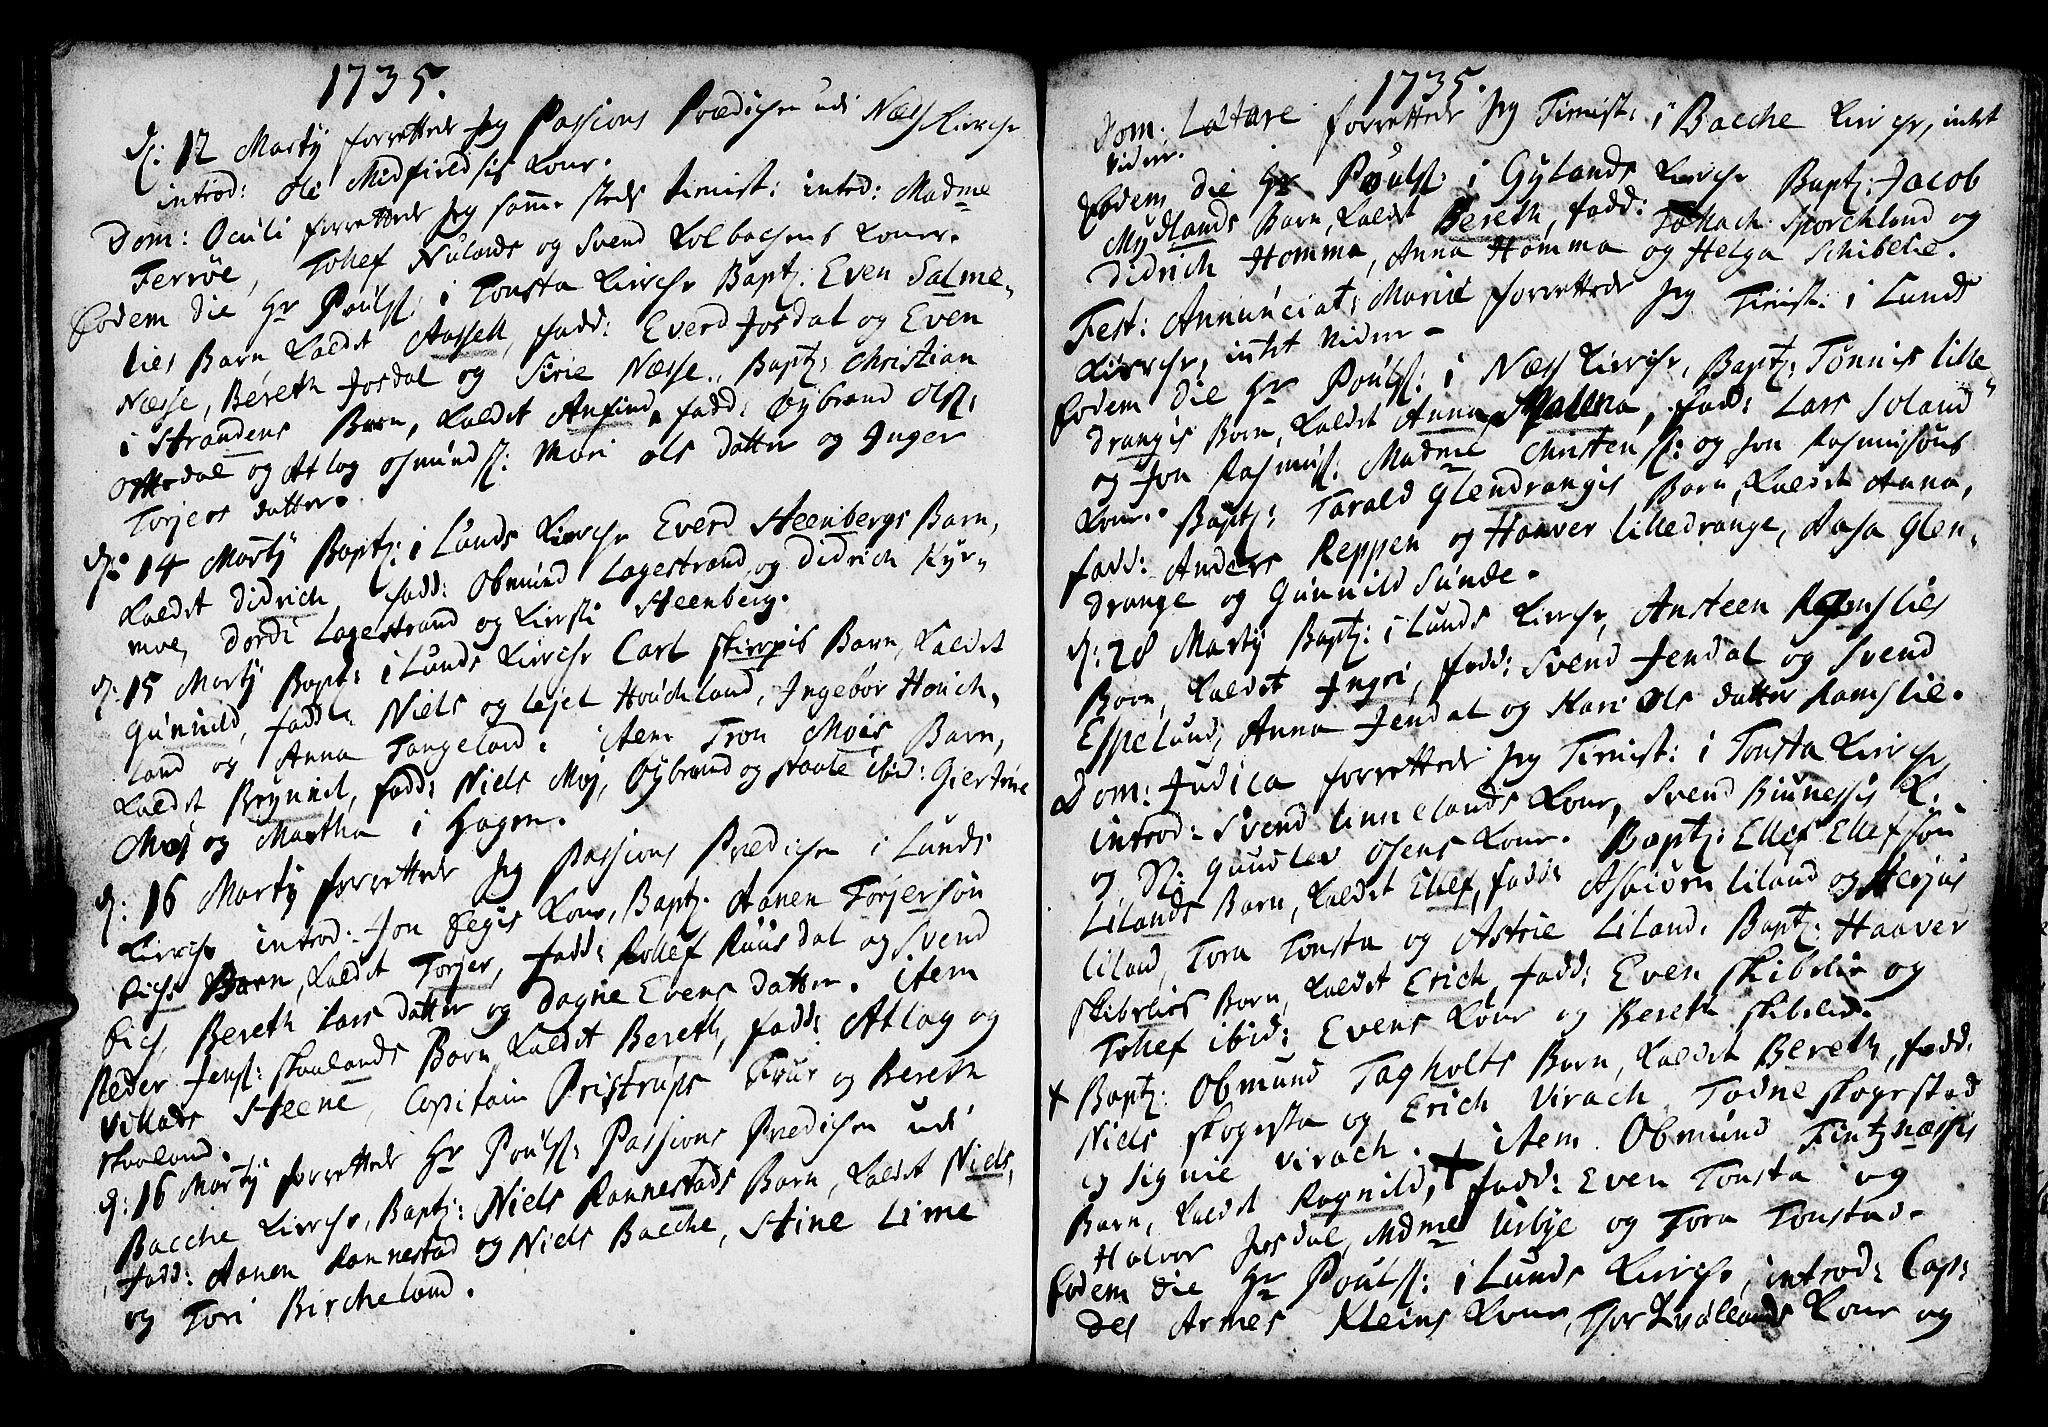 1735.
d: 12 Martij forrettede Jeg Passions Prædichen udi Næss Kirche
introd: Ole Midfieldsis Kone.
Dom: Oculi forrettede Jeg samme steds tienist: introd: Madme
Ferrøe, Tollef Nulands og Svend Kolbachens Koner.
Eodem Die Hr Poulss: i Tonsta Kirche Baptz: Even Salme-
lies Barn, Kaldet Aassell, fadd: Everd Josdal og Even
Næsse, Bereth Josdal og Sirie Næsse. Baptz: Christian
i Strandens Barn, Kaldet Anfind, fadd: Øybrand Olss:
og Atlag Osmundss: Mari Ols datter og Inger
Torjers datter.
d: 14 Martij Baptz: i Lunds Kirche Everd Steenbergs Barn,
Kaldet Didrich, fadd: Obmund Lagestrand og Didrich Kyr-
moe, Dordi Lagestrand og Kirsti Steenberg.
d: 15 Martij Bapt: i Lunds Kirche Carl Skierpis Barn, Kaldet
Gunnild, fadd: Niels og Lejel Houcheland, Ingebor Houch-
land og Anna Tangeland. Item Tron Mois Barn,
Kaldet Brynnil, fadd: Niels Moj, Øybrand og Staale ibid: Giertrue
Moj og Martha i Hagen.
d: 16 Martij forrettede Jeg Passions Prædichen i Lunds
Kirche introd: Jon Eegis Kone, Baptz. Aanen Torjersøn
Barn, Kaldet Torjer, fadd: Rollef Ruusdal og Svend
Bereth Lars datter og Dagne Evens datter. Item
Peder Jenss: Skaalands Barn, Kaldet Bereth, fadd: Atlag og
Villads Steene, Capitain Pristrups Frue og Bereth
Skaaland.
d: 16 Martij forrettede Hr Poulss: Passions Prædichen udi
Bacche Kirche, Baptz: Niels Rannestads Barn, Kaldet Niels,
fadd: Aanen Rannestad og Niels Bacche, Stine Lime
og Tori Bircheland.
1735.
Dom: Lætare forrettede Jeg Tienist: i Bacche Kirche, intet
videre.
Eodem Die Hr Poulss: i Gylands Kirche Baptz: Jacob
Mydlands Barn, Kaldet Bereth, fadd: Tollach Sporchland og
Didrich Homma, Anna Homma og Helga Schibelie.
Fest: Annunciat: Mariæ forrettede Jeg Tienist: i Lunds
Kirche, intet videre -
Eodem Die Hr Poulss: i Næss Kirche, Baptz: Tønnis Lille
drangis Barn, Kaldet Anna Malena, fadd: Lars Soland
og Jon Rasmuss: Madme Christenss: og Jon Rasmusøns
Kone. Baptz: Tarald Glendrangis Barn, Kaldet Anna,
fadd: Anders Reppen og Haaver Lilledrange, Aasa Glen-
drange og Gunnild Sunde.
d: 28 Martij Baptz: i Lunds Kirche, Ansteen Ramslies
Barn, Kaldet Ingri, fadd: Svend Jendal og Svend
Eppeland, Anna Jendal og Kari Ols datter Ramslie.
Dom: Judica forrettede Jeg Tienist: i Tonsta Kirche,
introd: Svend Linnelands Kone, Svend Biunessis K.
og Gundlev Osens Kone. Baptz: Ellef Ellefsøn
Lilands Barn, Kaldet Ellef, fadd: Asbiørn Liland og Herjus
Liland, Tora Tonsta og Astrie Liland. Baptz: Haaver
Skibelies Barn, Kaldet Erich, fadd: Even Skibelie og
Tollef ibid: Evens Kone og Bereth Skibelie.
+ Baptz: Obmund Tagholts Barn, Kaldet Bereth, fadd:
Niels Skogesta og Erich Virach, Todne Skogestad
og Signie Virach. + Item Obmund Fintznæssis
Barn, Kaldet Ragnild, fadd: Even Tonsta og
Halvor Josdal, Mdme Usbye og Tora Tonstad.
Eodem Die Hr Poulss: i Lunds Kirche, introd: Cap:
Des Armes Kleins Kone, Tjor Kvællands Kone og